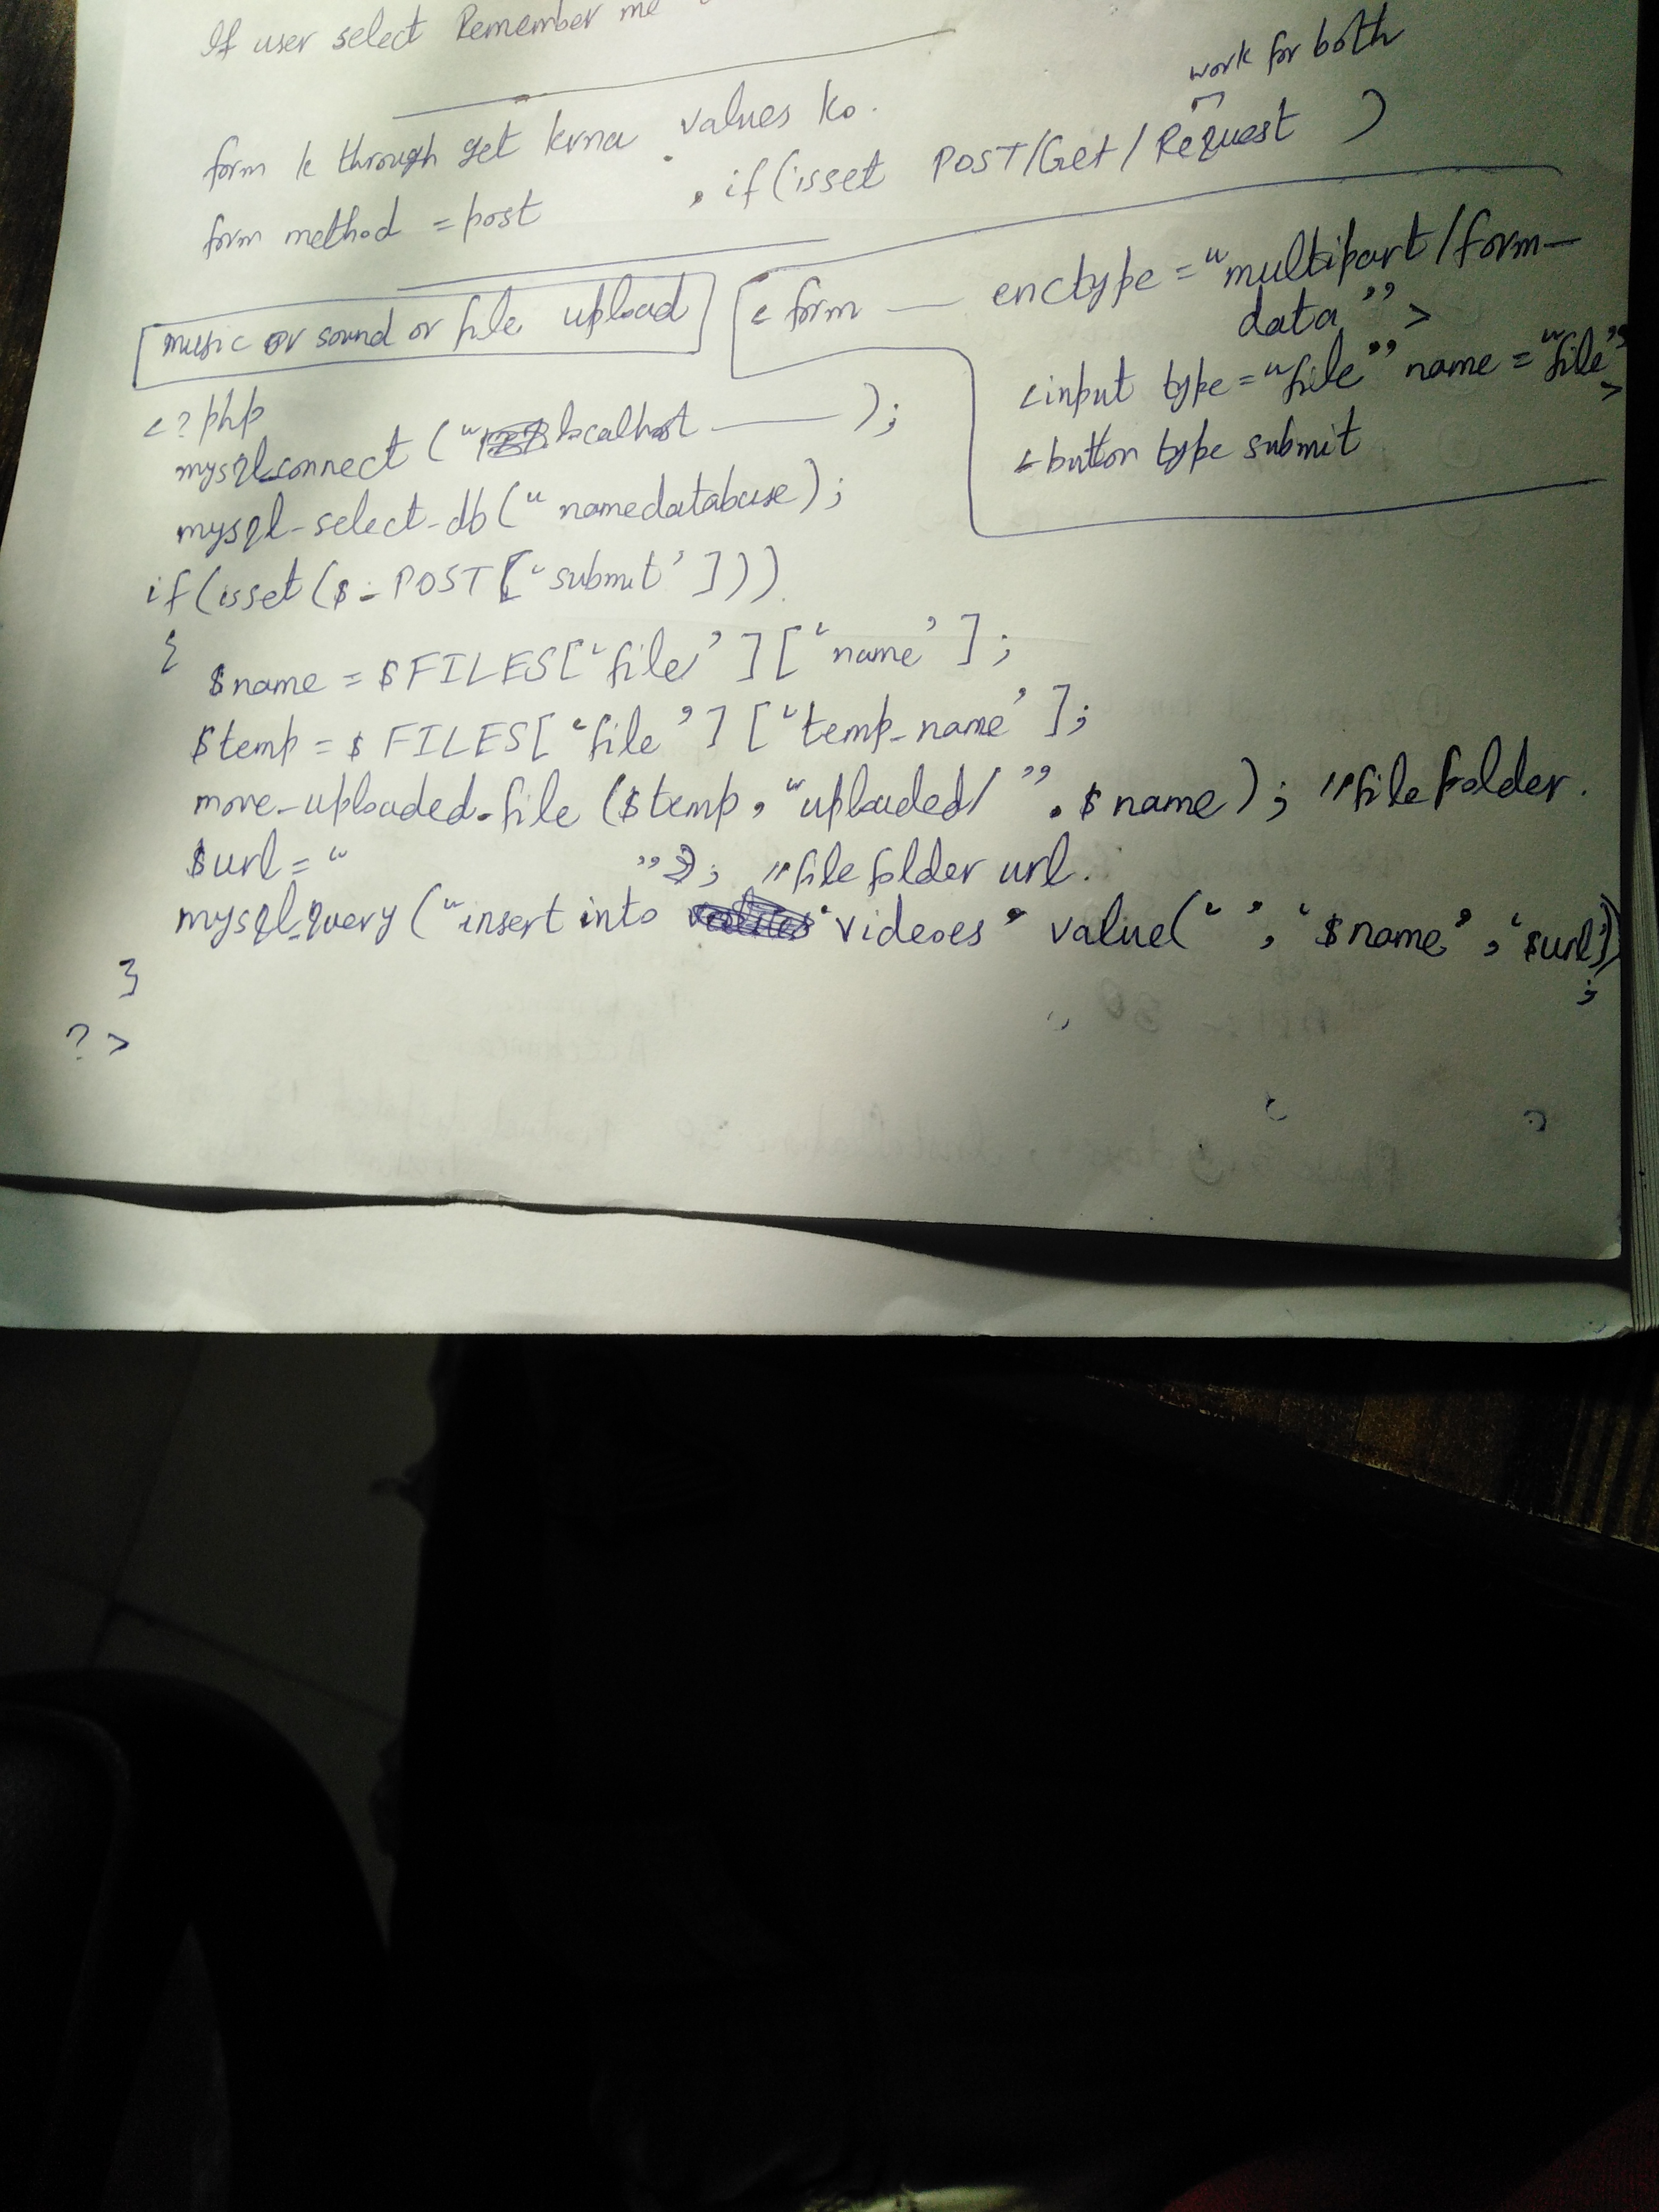 If user select Remember me
form k through get krna values ko.
form method = post , if(isset POST/Get/Request )
work for both
music or sound or file upload
<form — enctype = "multipart/form-
data">
<input type="file" name="file"
>
<button type submit
<?php
mysql_connect ("localhost —— );
mysql-select-db("namedatabase);
if(isset($_POST['submit']))
{ $name = $FILES['file']['name'];
$temp = $FILES['file']['temp_name'];
move-uploaded-file ($temp, "uploaded/".$name); //file folder.
$url = " "; //file folder url.
mysql_query ("insert into 'videoes' value(' ', '$name', '$url'))
;
}
?>